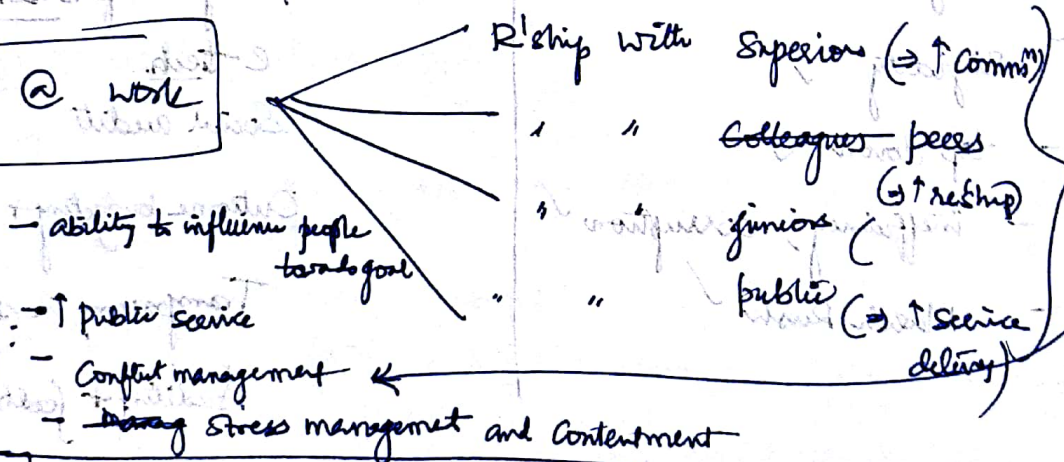 @ work
R'ship with Superiors (⇒ ↑ Commsⁿ)
" " Colleagues peers
(⇒ ↑ reship)
" " juniors (
" " public (⇒ ↑ Service delivery)
- ability to influence people towards goal
- ↑ Public service
- Conflict management
- stress managemet and Contentment